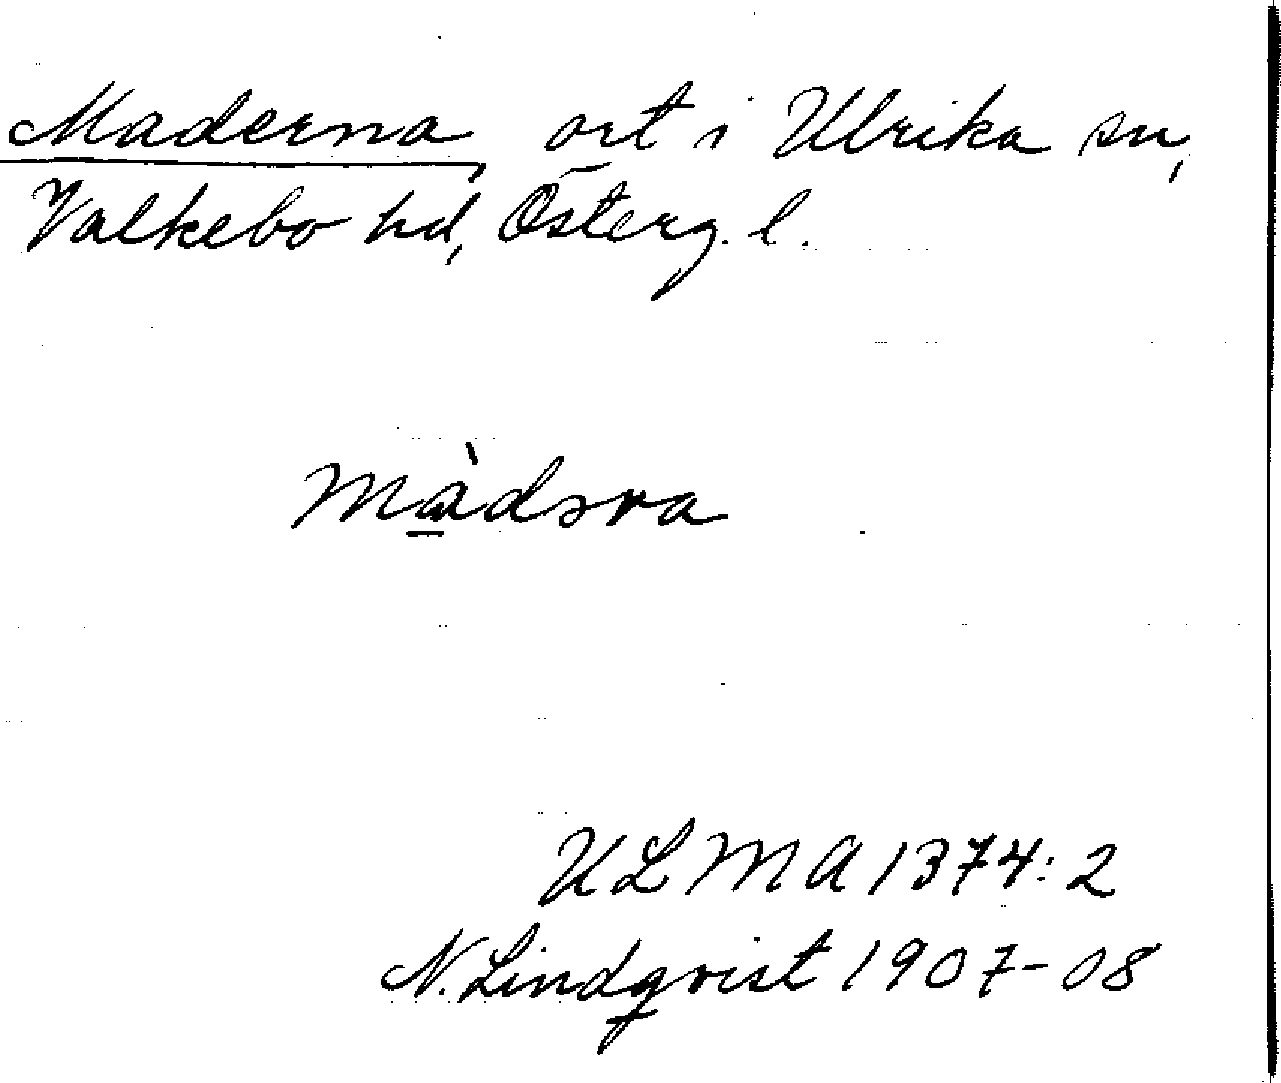 Maderna, ort i Ulrika sn,
Valkebo hd, Österg. l.
Màdɔra
ULMA 1374:2
N. Lindqvist 1907-08